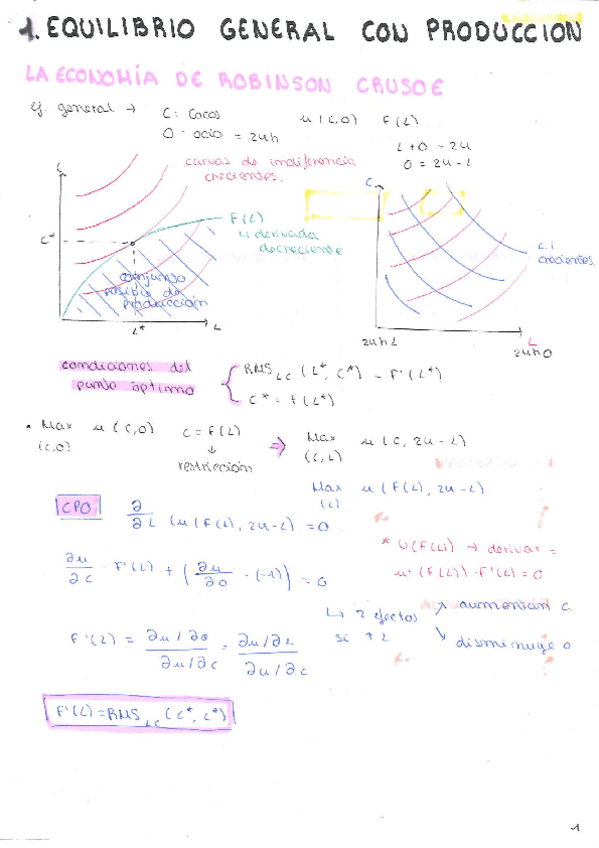 1. EQUILIBRIO GENERAL CON PRODUCCION
LA ECONOMÍA DE ROBINSON CRUSOE
ej. general → C: Cocos u(c,o) F(L)
O: ocio = 24h L+O = 24
O = 24-L
C
curvas de indiferencia
crecientes.
C*
F(L)
↳ derivada
decreciente
conjunto
posible de
producción
L*
L
C
c.i
crecientes.
24h L
L
24h O
condiciones del
punto óptimo
RMS LC (L*, C*) = F'(L*)
C* = F(L*)
• Max u(c,o) c = F(L) ⇒ Max u(c, 24-L)
(c,o) ↓ (c,L)
restricción
Max u(F(L), 24-L)
(L)
CPO ∂/∂L (u(F(L), 24-L) = 0
* U(F(L)) → derivar =
u'(F(L))·F'(L) = 0
∂u/∂c · F'(L) + (∂u/∂o · (-1)) = 0
↳ 2 efectos ↗ aumentan c.
si ↑L ↘ disminuye o
F'(L) = ∂u/∂o / ∂u/∂c = ∂u/∂L / ∂u/∂c
F'(L) = RMS LC (C*, L*)
1